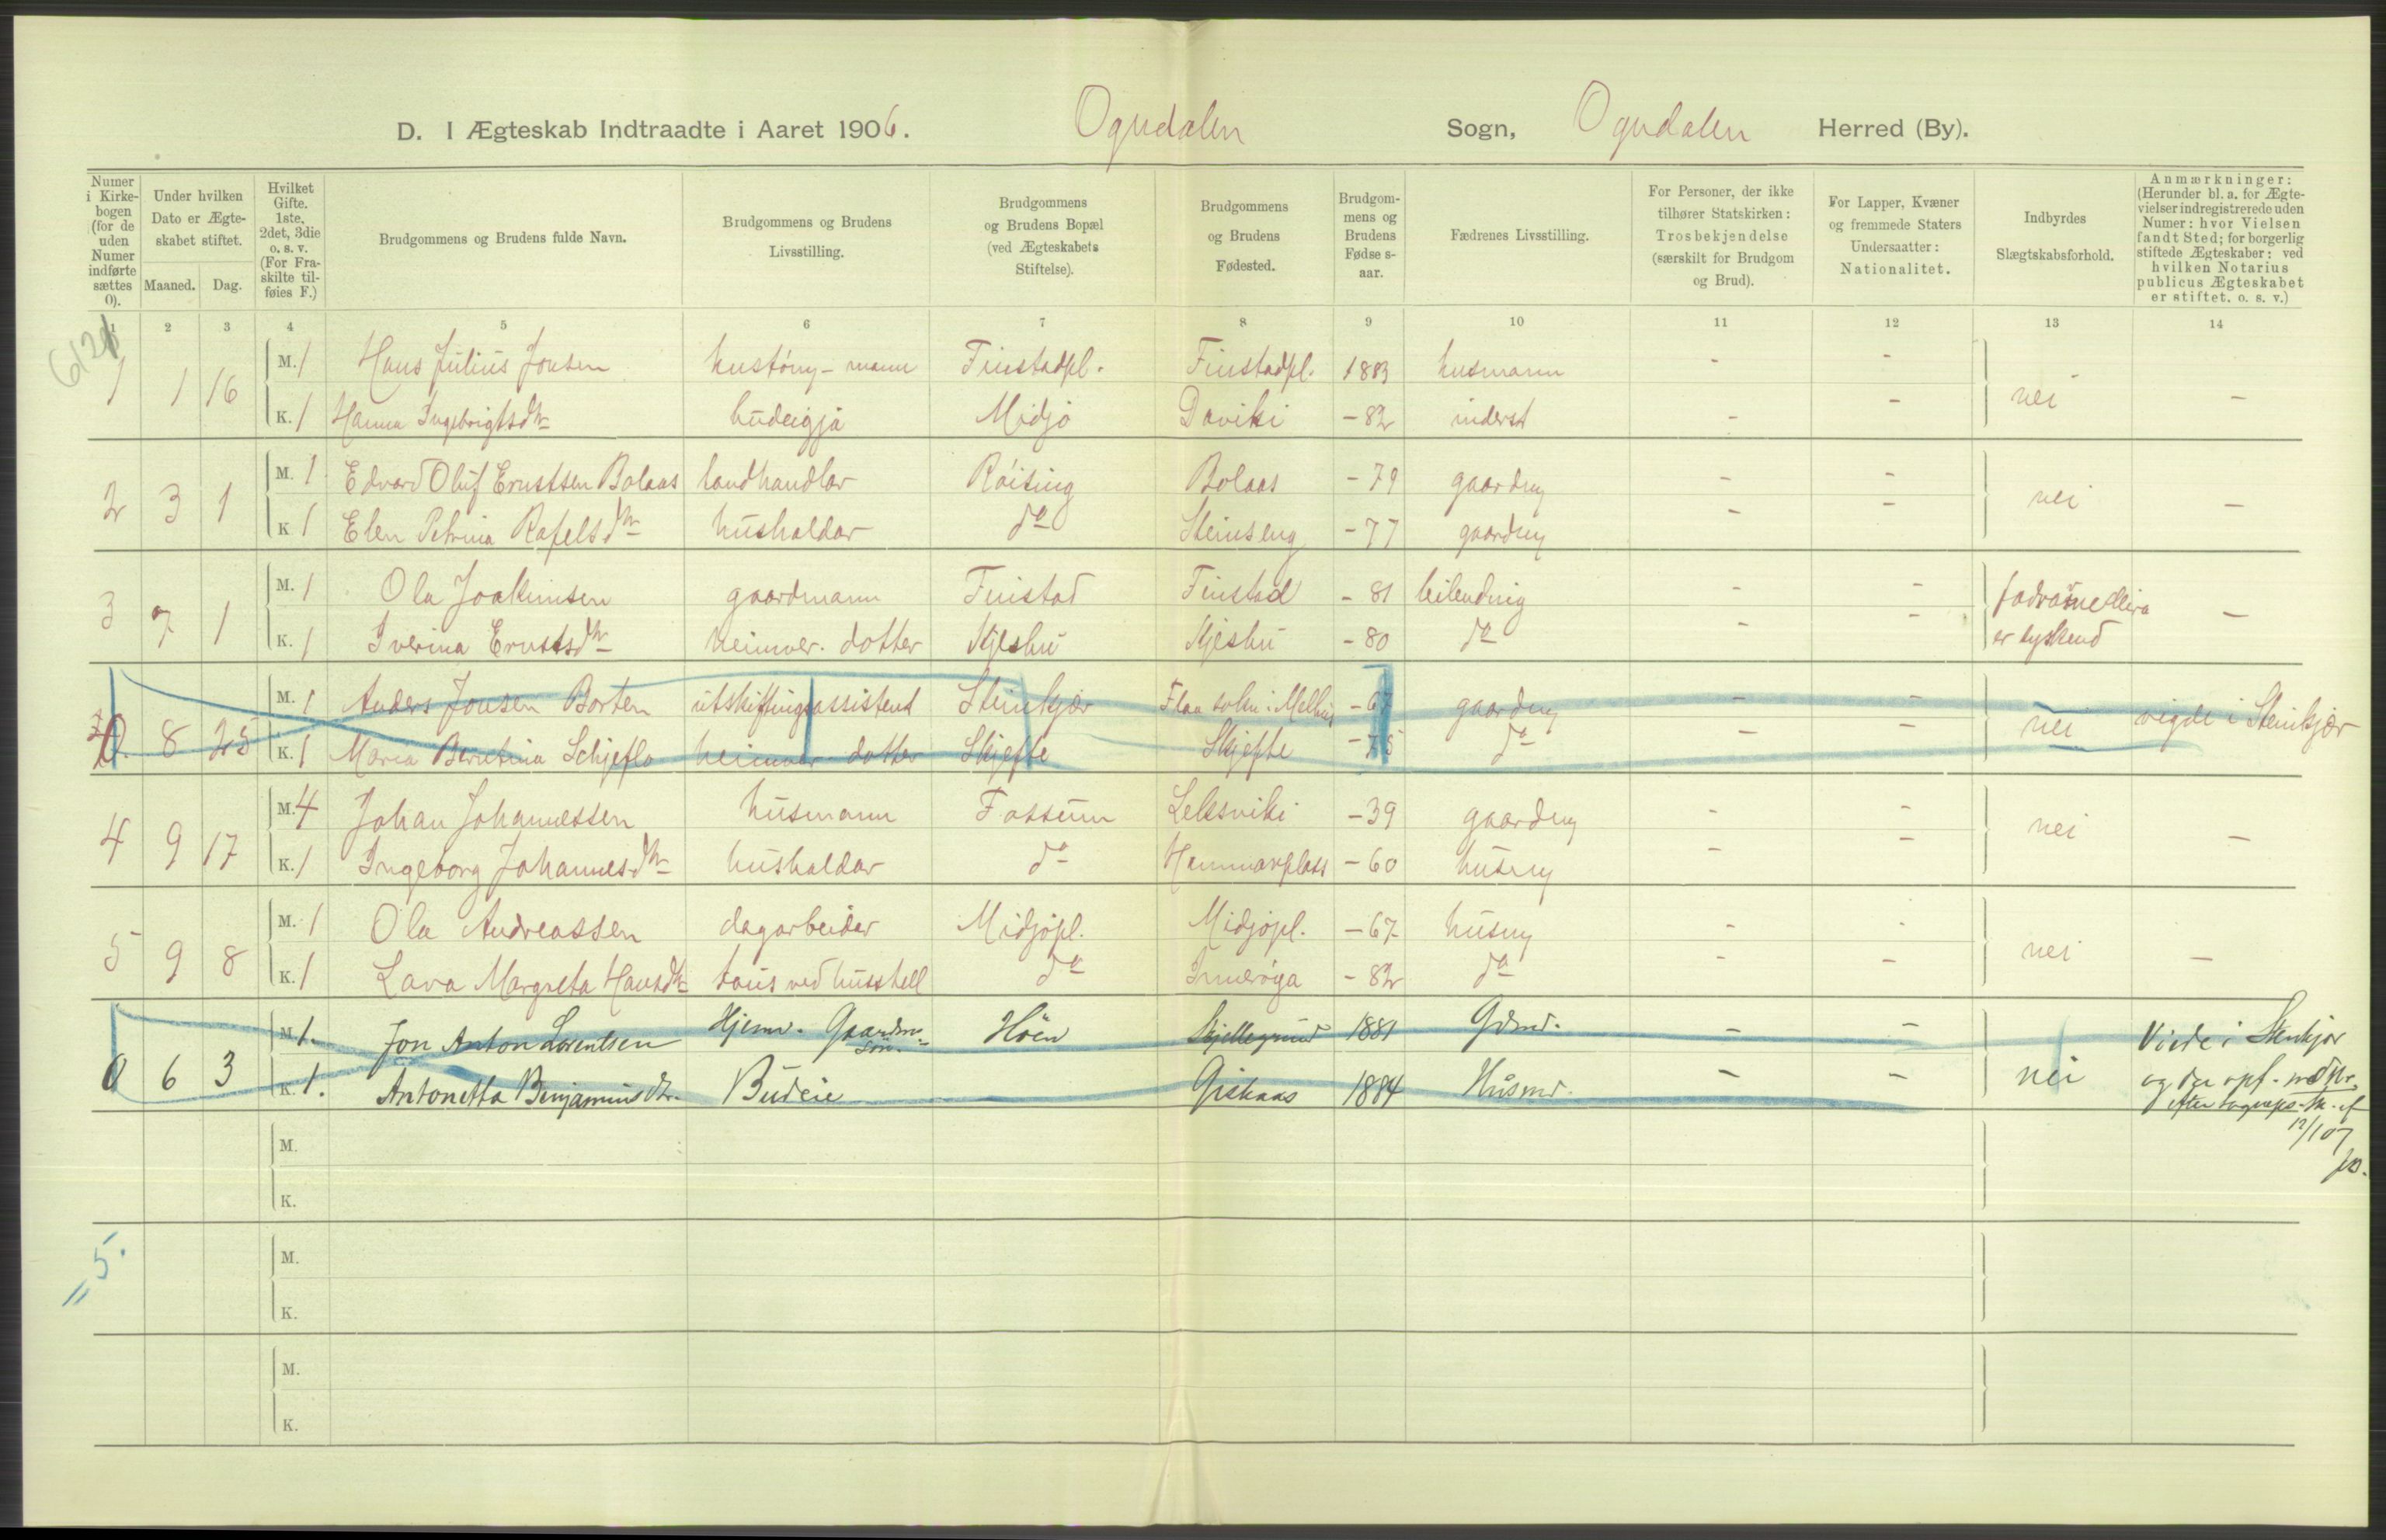 D. I Ægteskab Indtraadte i Aaret 1906. Ogndalen Sogn, Ogndalen Herred (By).
Numer i Kirkebogen (for de uden Numer indførte sættes 0).
Under hvilken Dato er Ægteskabet stiftet.
Maaned. Dag.
Hvilket Gifte. 1ste, 2det, 3die o. s. v. (For Fraskilte tilføies F.)
Brudgommens og Brudens fulde Navn.
Brudgommens og Brudens Livsstilling.
Brudgommens og Brudens Bopæl (ved Ægteskabets Stiftelse).
Brudgommens og Brudens Fødested.
Brudgommens og Brudens Fødselsaar.
Fædrenes Livsstilling.
For Personer, der ikke tilhører Statskirken: Trosbekjendelse (særskilt for Brudgom og Brud).
For Lapper, Kvæner og fremmede Staters Undersaatter: Nationalitet.
Indbyrdes Slægtskabsforhold.
Anmærkninger: (Herunder bl. a. for Ægtevielser indregistrerede uden Numer: hvor Vielsen fandt Sted; for borgerlig stiftede Ægteskaber: ved hvilken Notarius publicus Ægteskabet er stiftet. o. s. v.)
1 2 3 4 5 6 7 8 9 10 11 12 13 14
1 1 16 M. 1 Hans Julius Jonsen Finstadpl. Finstadpl. 1883 husmann - -
K. 1 Hanna Ingebrigtsdtr budeigja Midjo Daviki -82 inderst - - nei -
2 3 1 M. 1 Edvard Oluf Ernstsen Bolaas landhandlar Röising Bolaas -79 gaardmg - -
K 1 Elen Petrina Rafelsdtr hushaldar do Steinseng -77 gaardmg - - nei -
3 7 1 M. 1 Ola Joakimsen gaardmann Finstad Finstad -81 leilending - -
K. 1 Iverina Ernstsdtr heimver. dotter -80 do - - er syskend -
0 8 25 M. 1 Anders Jonsen Borten utskiftingsassistent Steinkjær Flaa sokn i Melhus -67 gaardmg - -
K. 1 Maria Berntina Schjeflo heimver dotter Skjefte Skjefte -75 do - - nei vigde i Steinkjær
4 9 17 M. 4 Johan Johannessen husmann Fossum Leksviki -39 gaardmg - -
K. 1 Ingeborg Johannesdtr hushaldar do Hammarplass -60 husmg - - nei -
5 9 8 M. 1 Ola Andreassen dagarbeidar Midjopl. Midjopl. -67 husmg - -
K. 1 Lava Margreta Hansdtr taus ved husstell do Inneröya -82 do - - nei -
0 6 3 M 1. Jon Anton Lorentsen Hjemv. Gaardm. Sön. Höen Skjellegrind 1881 Gdmd. - - Viede i Stenkjær
K. 1. Antonetta Benjaminsdtr. Budeie Giskaas 1884 Husmd. - - nei og der opf. med Nr.
12/1 07
M.
K.
= 5.
M.
K.
M.
K.